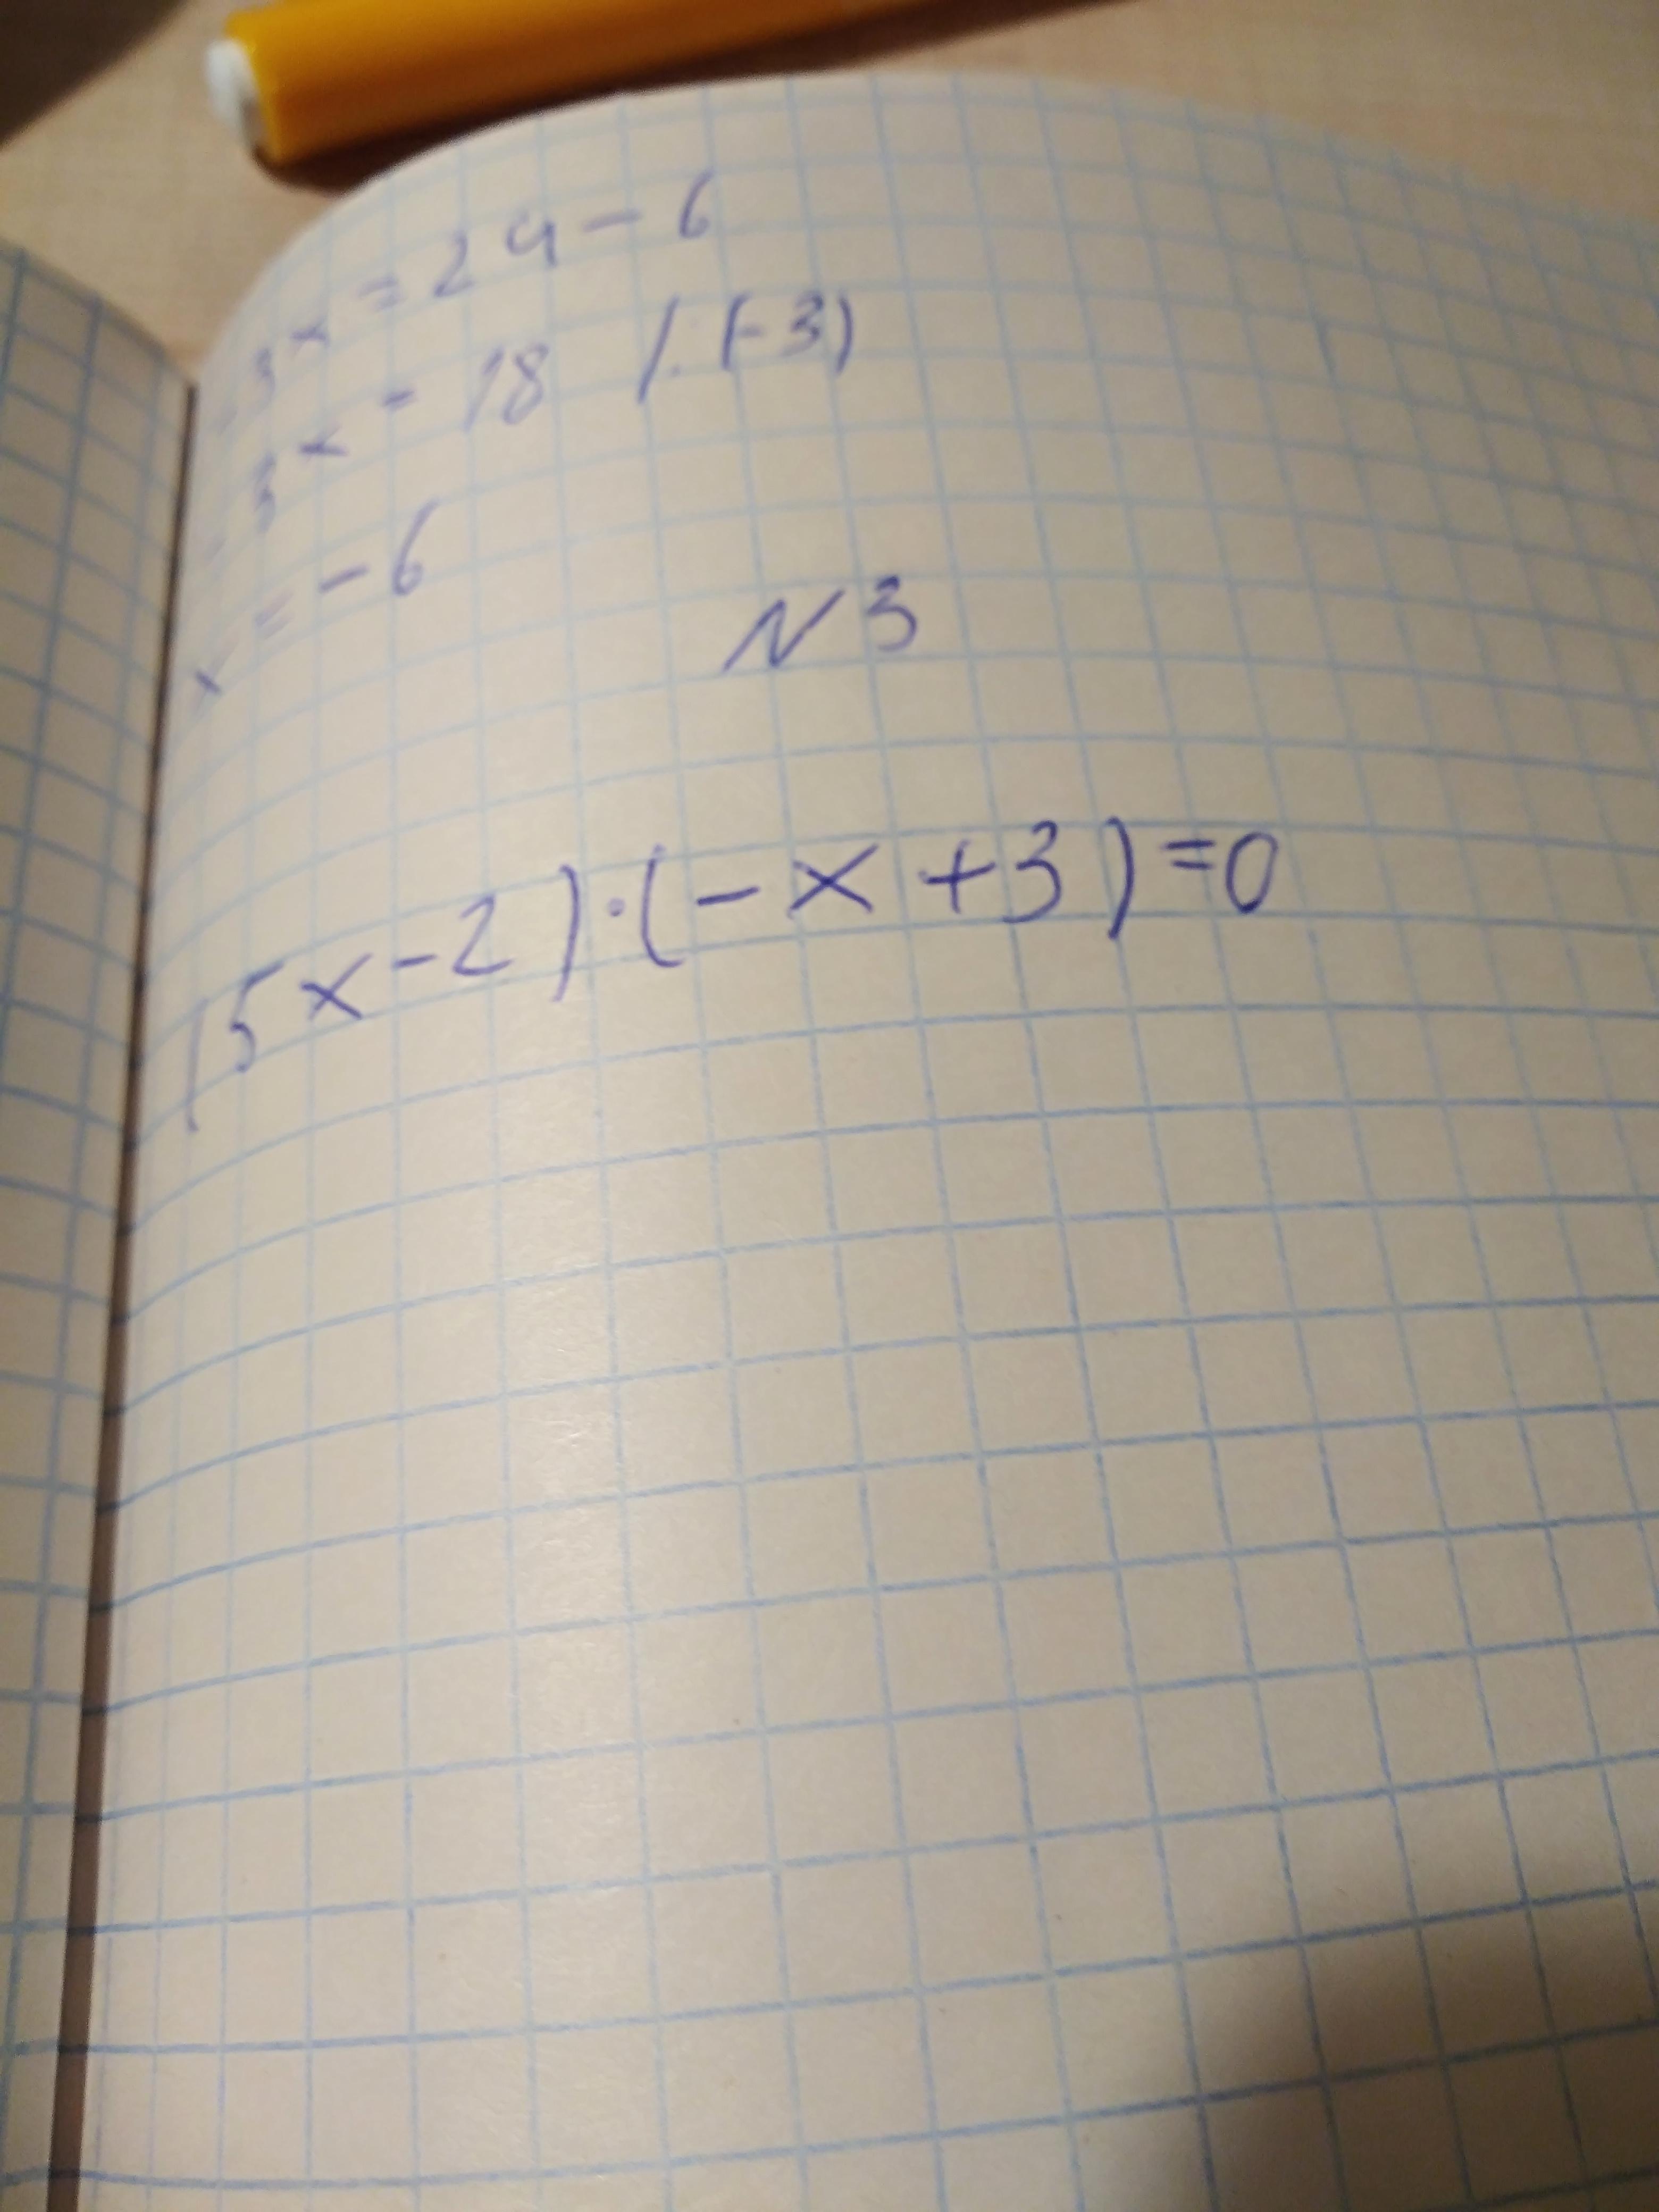 - 3x = 24 - 6
- 3x = 18 /:(-3)
x = - 6
N3
(5x-2)·(-x+3)=0